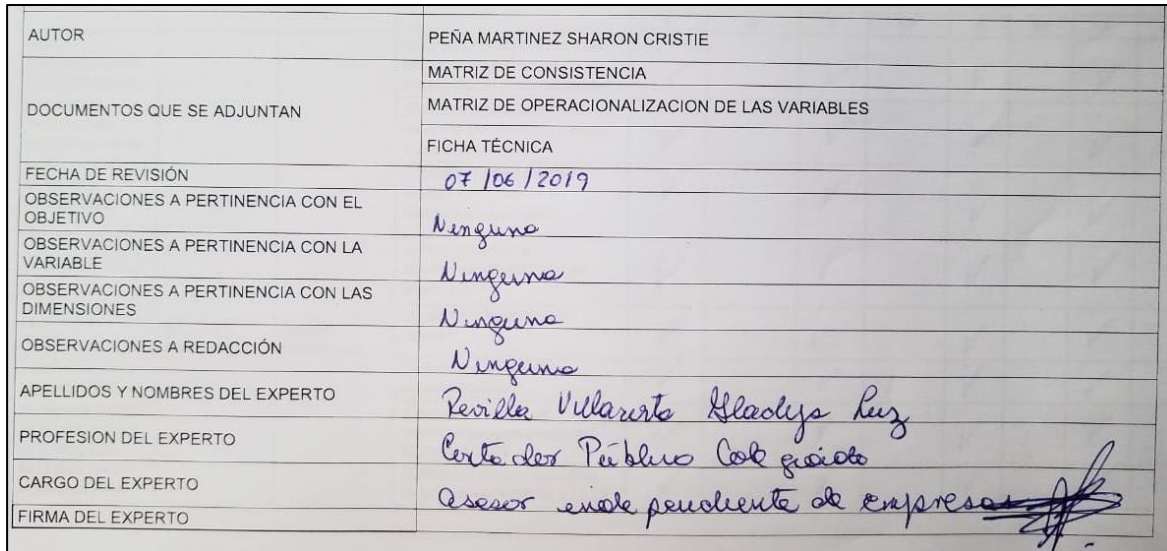 AUTOR
PEÑA MARTINEZ SHARON CRISTIE
DOCUMENTOS QUE SE ADJUNTAN
MATRIZ DE CONSISTENCIA
MATRIZ DE OPERACIONALIZACION DE LAS VARIABLES
FICHA TÉCNICA
FECHA DE REVISIÓN
07/06/2019
OBSERVACIONES A PERTINENCIA CON EL
OBJETIVO
Ninguna
OBSERVACIONES A PERTINENCIA CON LA
VARIABLE
Ninguna
OBSERVACIONES A PERTINENCIA CON LAS
DIMENSIONES
Ninguna
OBSERVACIONES A REDACCIÓN
Ninguna
APELLIDOS Y NOMBRES DEL EXPERTO
Revilla Gladys Luz
PROFESION DEL EXPERTO
Contador Público Colegiado
CARGO DEL EXPERTO
Asesor independiente de empresas
FIRMA DEL EXPERTO